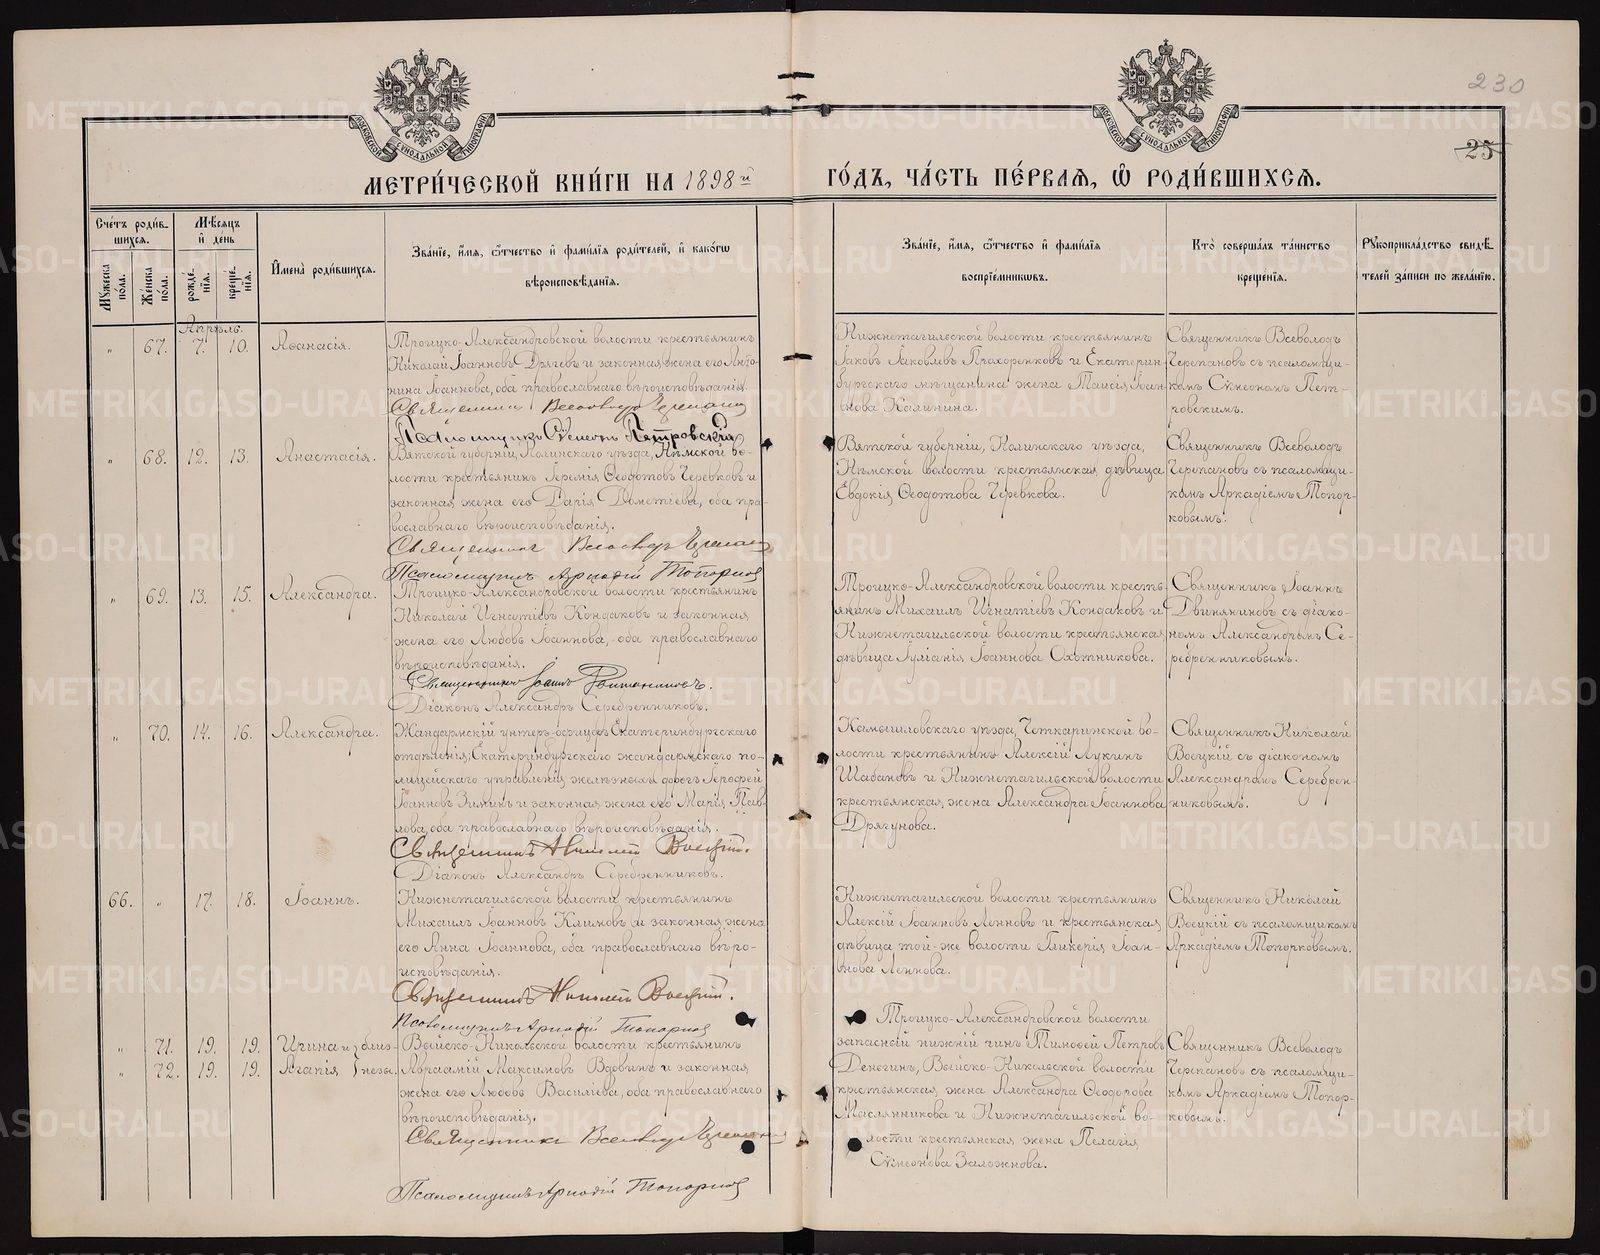 230
25
МОСКОВСКОЙ СѴНОДАЛЬНОЙ ТИПОГРАФІИ
МОСКОВСКОЙ СѴНОДАЛЬНОЙ ТИПОГРАФІИ
МЕТРИ́ЧЕСКОЙ КНИ́ГИ НА 1898й ГО́ДЪ, ЧА́СТЬ ПЕ́РВАЯ, Ѡ РОДИ́ВШИХСЯ.
Сче́тъ роди́в-
шихся.
Мꙋжеска по́ла.
Же́нска по́ла.
Мѣ́сяцъ
и҆ де́нь
рожде́-
нія.
креще́-
нія.
И҆мена̀ роди́вшихся.
Зва́ніе, и҆́мя, ѻ҆́тчество и҆ фами́лія роди́телей, и҆ како́гѡ
вѣроисповѣ́данія.
Зва́ніе, и҆́мя, ѻ҆́тчество и҆ фами́лія
воспріе́мникѡвъ.
Кто̀ соверша́лъ та́инство
креще́нія.
Рꙋкоприкла́дство свидѣ́-
телей за́писи по жела́нію.
Апрѣль.
" 67. 7. 10. Аѳанасія.
Троицко-Александровской волости крестьянинъ
Николай Іоанновъ Дрягевъ и законная жена его Анто-
нина Іоаннова, оба православнаго вѣроисповѣданія.
Священникъ Всеволодъ Черепановъ
Псаломщикъ Сѵмеонъ Петровскій
Нижнетагильской волости крестьянинъ
Іаковъ Іаковлевъ Прохоренковъ и Екатерин-
бургскаго мѣщанина жена Таисія Іоан-
нова Калинина.
Священникъ Всеволодъ
Черепановъ съ псаломщи-
комъ Сѵмеономъ Пет-
ровскимъ.
" 68. 12. 13. Анастасія.
Вятской губерніи, Нолинскаго уѣзда, Нѣмской во-
лости крестьянинъ Іеремія Ѳеодотовъ Черевковъ и
законная жена его Дарія Дометіева, оба пра-
вославнаго вѣроисповѣданія.
Священникъ Всеволодъ Черепановъ
Псаломщикъ Аркадій Топорковъ
Вятской губерніи, Нолинскаго уѣзда,
Нѣмской волости крестьянская дѣвица
Евдокія Ѳеодотова Черевкова.
Священникъ Всеволодъ
Черепановъ съ псаломщи-
комъ Аркадіемъ Топор-
ковымъ.
" 69. 13. 15. Александра.
Троицко-Александровской волости крестьянинъ
Николай Игнатіевъ Кондаковъ и законная
жена его Любовь Іоаннова, оба православнаго
вѣроисповѣданія.
Священникъ Іоаннъ Двиняниновъ.
Діаконъ Александръ Серебренниковъ.
Троицко-Александровской волости кресть-
янинъ Михаилъ Игнатіевъ Кондаковъ и
Нижнетагильской волости крестьянская
дѣвица Іуліанія Іоаннова Охотникова.
Священникъ Іоаннъ
Двиняниновъ съ діако-
номъ Александромъ Се-
ребренниковымъ.
" 70. 14. 16. Александра.
Жандармскій унтеръ-офицеръ Екатеринбургскаго
отдѣленія, Екатеринбургскаго жандармскаго по-
лицейскаго управленія желѣзныхъ дорогъ Іероѳей
Іоанновъ Зиминъ и законная жена его Марія Пав-
лова, оба православнаго вѣроисповѣданія.
Священникъ Николай Воецкій.
Діаконъ Александръ Серебренниковъ.
Камышловскаго уѣзда, Четкаринской во-
лости крестьянинъ Алексій Лукинъ
Шабановъ и Нижнетагильской волости
крестьянская жена Александра Іоаннова
Дрягунова.
Священникъ Николай
Воецкій съ діакономъ
Александромъ Серебрен-
никовымъ.
66. " 17. 18. Іоаннъ.
Нижнетагильской волости крестьянинъ
Михаилъ Іоанновъ Климовъ и законная жена
его Анна Іоаннова, оба православнаго вѣро-
исповѣданія.
Священникъ Николай Воецкій.
Псаломщикъ Аркадій Топорковъ
Нижнетагильской волости крестьянинъ
Алексій Іоанновъ Ленновъ и крестьянская
дѣвица той-же волости Гликерія Іоан-
нова Леннова.
Священникъ Николай
Воецкій съ псаломщикомъ
Аркадіемъ Топорковымъ.
" 71. 19. 19. Ирина и } близ-
" 72. 19. 19. Агапія } нецы.
Выйско-Никольской волости крестьянинъ
Авраамій Максимовъ Вдовинъ и законная
жена его Любовь Василіева, оба православнаго
вѣроисповѣданія.
Священникъ Всеволодъ Черепановъ
Псаломщикъ Аркадій Топорковъ
Троицко-Александровской волости
запасный нижній чинъ Тимоѳей Петровъ
Денегинъ, Выйско-Никольской волости
крестьянская жена Александра Ѳеодорова
Маслянникова и Нижнетагильской во-
лости крестьянская жена Пелагія
Сѵмеонова Заложнова.
Священникъ Всеволодъ
Черепановъ съ псаломщи-
комъ Аркадіемъ Топор-
ковымъ.